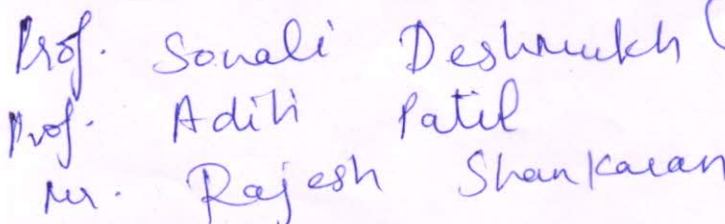 Prof. Sonali Deshmukh (
Prof. Aditi Patil
Mr. Rajesh Shankaran